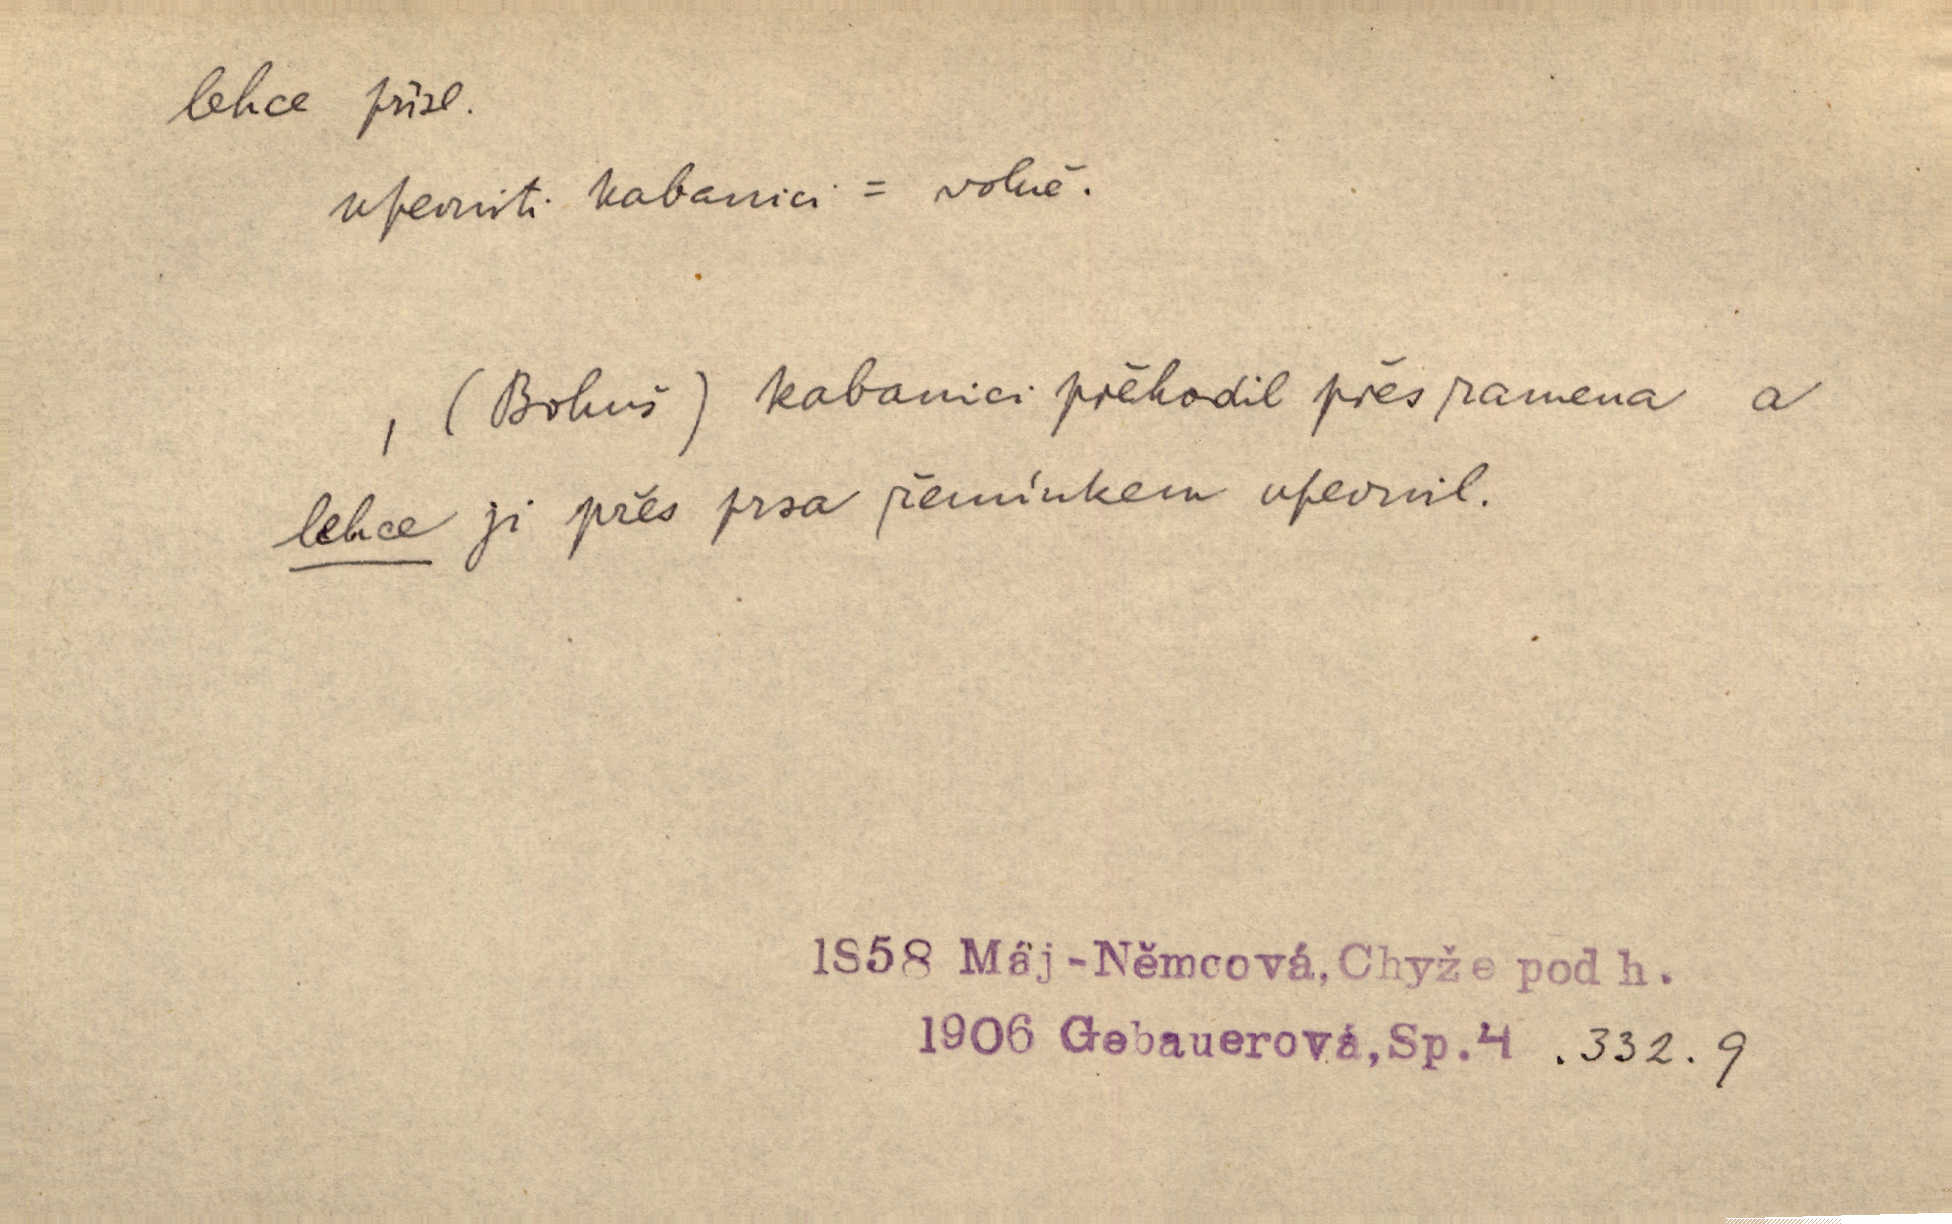 lehce přísl.
upevniti kabanici = volně.
, (Bohuš) kabanici přehodil přes ramena a
lehce ji přes prsa řemínkem upevnil.
1858 Máj-Němcová, Chyže pod h.
1906 Gebauerová, Sp.4 .332.9